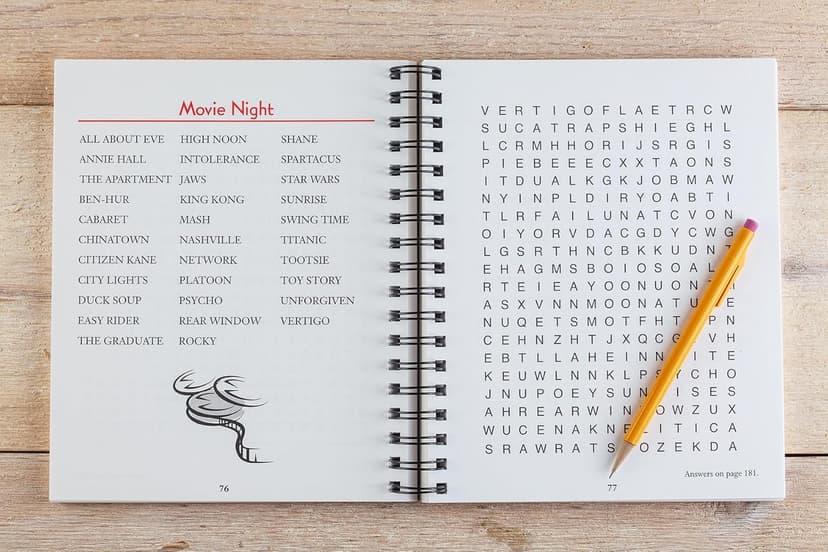 Movie Night
ALL ABOUT EVE
ANNIE HALL
THE APARTMENT
BEN-HUR
CABARET
CHINATOWN
CITIZEN KANE
CITY LIGHTS
DUCK SOUP
EASY RIDER
THE GRADUATE
HIGH NOON
INTOLERANCE
JAWS
KING KONG
MASH
NASHVILLE
NETWORK
PLATOON
PSYCHO
REAR WINDOW
ROCKY
SHANE
SPARTACUS
STAR WARS
SUNRISE
SWING TIME
TITANIC
TOOTSIE
TOY STORY
UNFORGIVEN
VERTIGO
76
V E R T I G O F L A E T R C W
S U C A T R A P S H I E G H L
L C R M H H O R I J S R G I S
P I E B E E E C X X T A O N S
I T D U A L K G K J O B M A W
N Y I N P L D I R Y O A B T I
T L R F A I L U N A T C V O N
O I Y O R V D A C G D Y C W G
L G S R T H N C B K K U D N
E H A G M S B O I O S O A L
R T E I E A Y O O N U O N I
A S X V N N M O O N A T U E
N U Q E T S M O T F H T P N
C E H N Z H T J X Q C V H
E B T L L A H E I N N I T E
K E U W L N N K L P S Y C H O
J N U P O E Y S U N I S E S
A H R E A R W I N O W Z U X
W U C E N A K N E I T I C A
S R A W R A T S O Z E K D A
Answers on page 181.
77